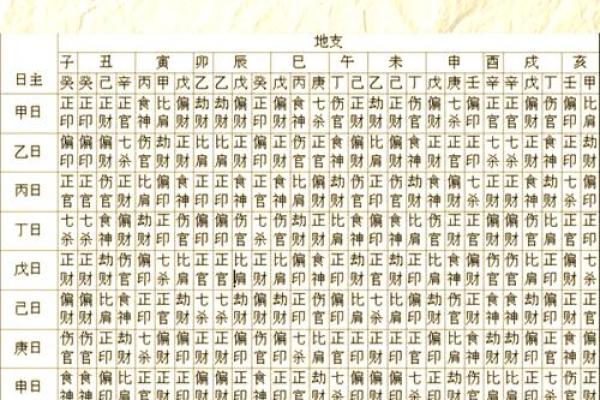 地支
日主 子 丑 寅 卯 辰 巳 午 未 申 酉 戌 亥
癸 癸 己 辛 丙 甲 戊 乙 乙 戊 癸 戊 丙 庚 丁 己 乙 己 丁 戊 庚 壬 辛 辛 戊 丁 壬 甲
甲日 正印 正印 正财 正官 食神 比肩 偏财 劫财 劫财 偏财 正印 偏财 食神 七杀 伤官 正财 劫财 正财 伤官 偏财 七杀 偏印 正官 正官 偏财 伤官 偏印 比肩
乙日 偏印 偏印 偏财 七杀 伤官 劫财 正财 比肩 比肩 正财 偏印 正财 伤官 正官 食神 偏财 比肩 偏财 食神 正财 正官 正印 七杀 七杀 正财 食神 正印 劫财
丙日 正官 正官 伤官 正财 比肩 偏印 食神 正印 正印 食神 正官 食神 比肩 偏财 劫财 伤官 正印 伤官 劫财 食神 偏财 七杀 正财 正财 食神 劫财 七杀 偏印
丁日 七杀 七杀 食神 偏财 劫财 正印 伤官 偏印 偏印 伤官 七杀 伤官 劫财 正财 比肩 食神 偏印 食神 比肩 伤官 正财 正官 偏财 偏财 伤官 比肩 正官 正印
戊日 正财 正财 劫财 伤官 偏印 七杀 比肩 正官 正官 比肩 正财 比肩 偏印 食神 正印 劫财 正官 劫财 正印 比肩 食神 偏财 伤官 伤官 比肩 正印 偏财 七杀
己日 偏财 偏财 比肩 食神 正印 正官 劫财 七杀 七杀 劫财 偏财 劫财 正印 伤官 偏印 比肩 七杀 比肩 偏印 劫财 伤官 正财 食神 食神 劫财 偏印 正财 正官
庚日 伤官 伤官 正印 劫财 七杀 偏财 偏印 正财 正财 偏印 伤官 偏印 七杀 比肩 正官 正印 正财 正印 正官 偏印 比肩 食神 劫财 劫财 偏印 正官 食神 偏财
申日 食神 食神 偏印 比肩 正官 正财 正印 偏财 偏财 正印 食神 正印 正官 劫财 七杀 偏印 偏财 偏印 七杀 正印 劫财 伤官 比肩 比肩 正印 七杀 伤官 正财